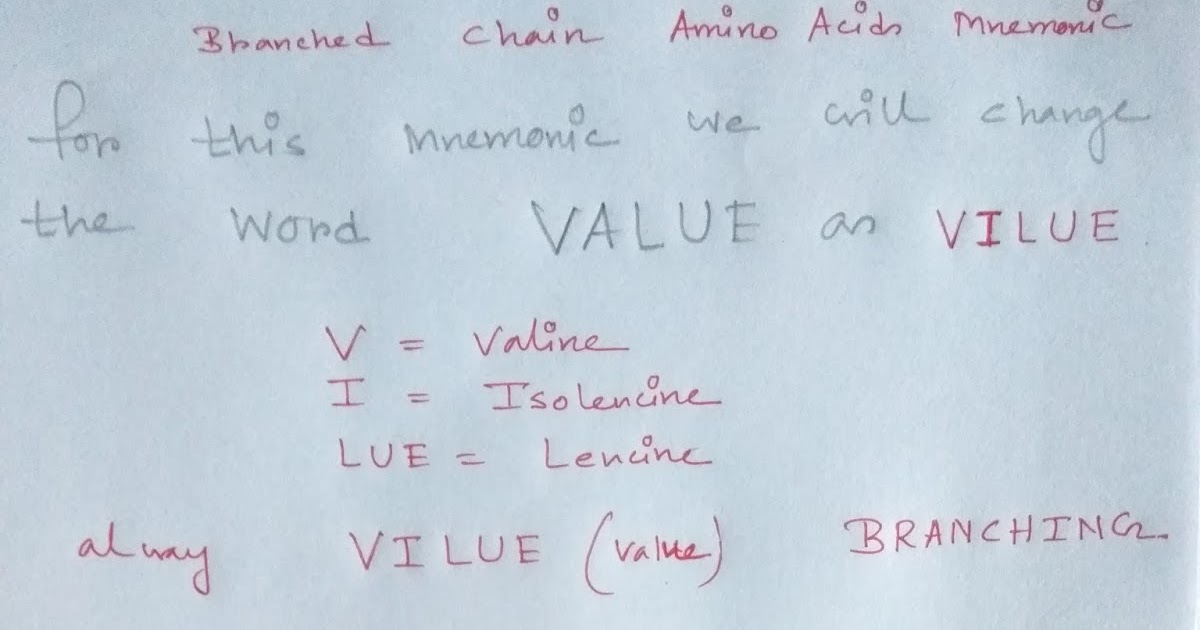 Branched Chain Amino Acids Mnemonic
for this mnemonic we will change
the word VALUE as VILUE
V = Valine
I = Isoleucine
LUE = Leucine
alway VILUE (value) BRANCHING